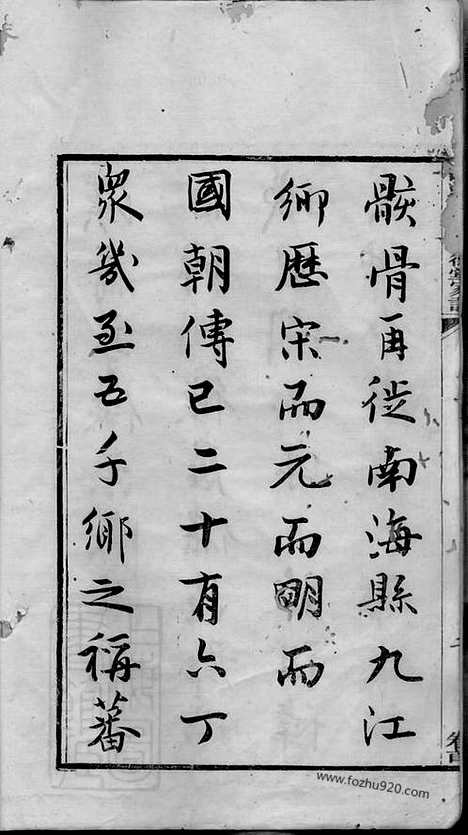 骸骨再徙南海縣九江
鄉歷宋而元而明而
國朝傳已二十有六丁
眾幾至五千鄉之稱蕃
www.fozhu920.com